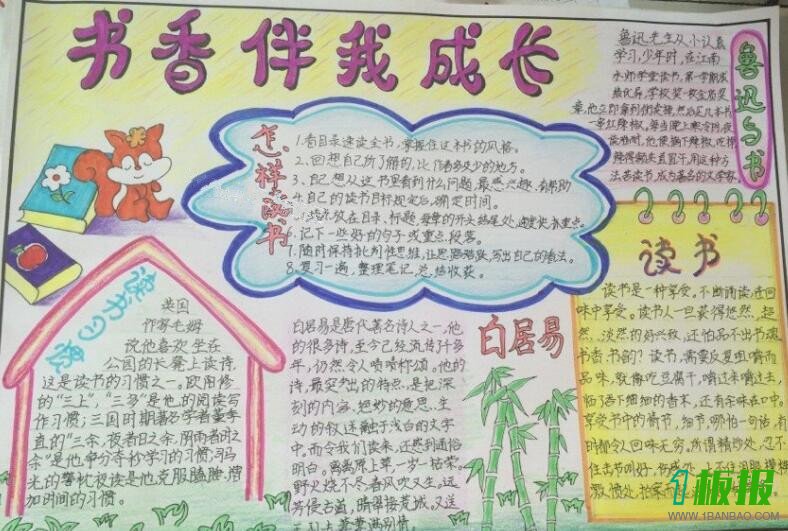 书香伴我成长
鲁迅与书
鲁迅先生从小认真
学习,少年时,在江南
水师学堂读书,第一学期成
绩优异,学校奖一枚金质奖
章,他立即拿到街卖掉,然后买几本书
一串红辣椒,每当晚上寒冷时,夜
读难耐,他便摘下辣椒,
辣得额头直冒汗,用这种方
法苦读书,成为著名的文学家.
怎样读书
1.看目录速读全书,掌握住这本书的风格。
2.回想自己所了解的,比作者多或少的地方。
3.自己想从这书里看到什么问题,最感兴趣,有帮助
4.自己的读书目标规定后,确定时间。
目录,标题,每章的开头结尾处,
6.记下一些好的句子或重点段落。
7.随时保持批判性思维,让思路活跃,写出自己的看法。
8.复习一遍,整理笔记,总结收获。
读书习惯
英国
作家毛姆
说他喜欢坐在
公园的长凳上读诗,
这是读书的习惯之一。欧阳修
的“三上”,“三多”是他的阅读写
作习惯;三国时期著名学者董季
直的“三余,夜者日之余,阴雨者时之
余”是他争分夺秒学习的习惯;司马
光的警枕夜读是他克服瞌睡,增
加时间的习惯。
白居易
白居易是唐代著名诗人之一,他
的很多诗,至今已经流传了千多
年,仍然令人啧啧称颂。他的
诗,最突出的特点,是把深
刻的内容,绝妙的意思,生
动的叙述融于浅白的文字
中。而令我们读来,还感到通俗
明白。离离原上草,一岁一枯荣。
野火烧不尽,春风吹又生。远
芳侵古道,晴翠接荒城。又送
王孙去,萋萋满别情。
读书
读书是一种享受。不断诵读,在回
味中享受。读书人一旦获得悠然,超
然,淡然的好兴致,还怕品不出书魂
书香书韵?读书,需要反复咀嚼而
品味,就像吃豆腐干,嚼过来嚼过去,
临了吞下细细的香末,还有余味在口中。
享受书中的情节,细节,哪怕一句话,有
时都令人回味无穷。所谓精妙处,忍不
住击节叫好,伤感处,忍不住泪眼模糊
激愤处,拍案而
1板报
WWW.1BANBAO.COM